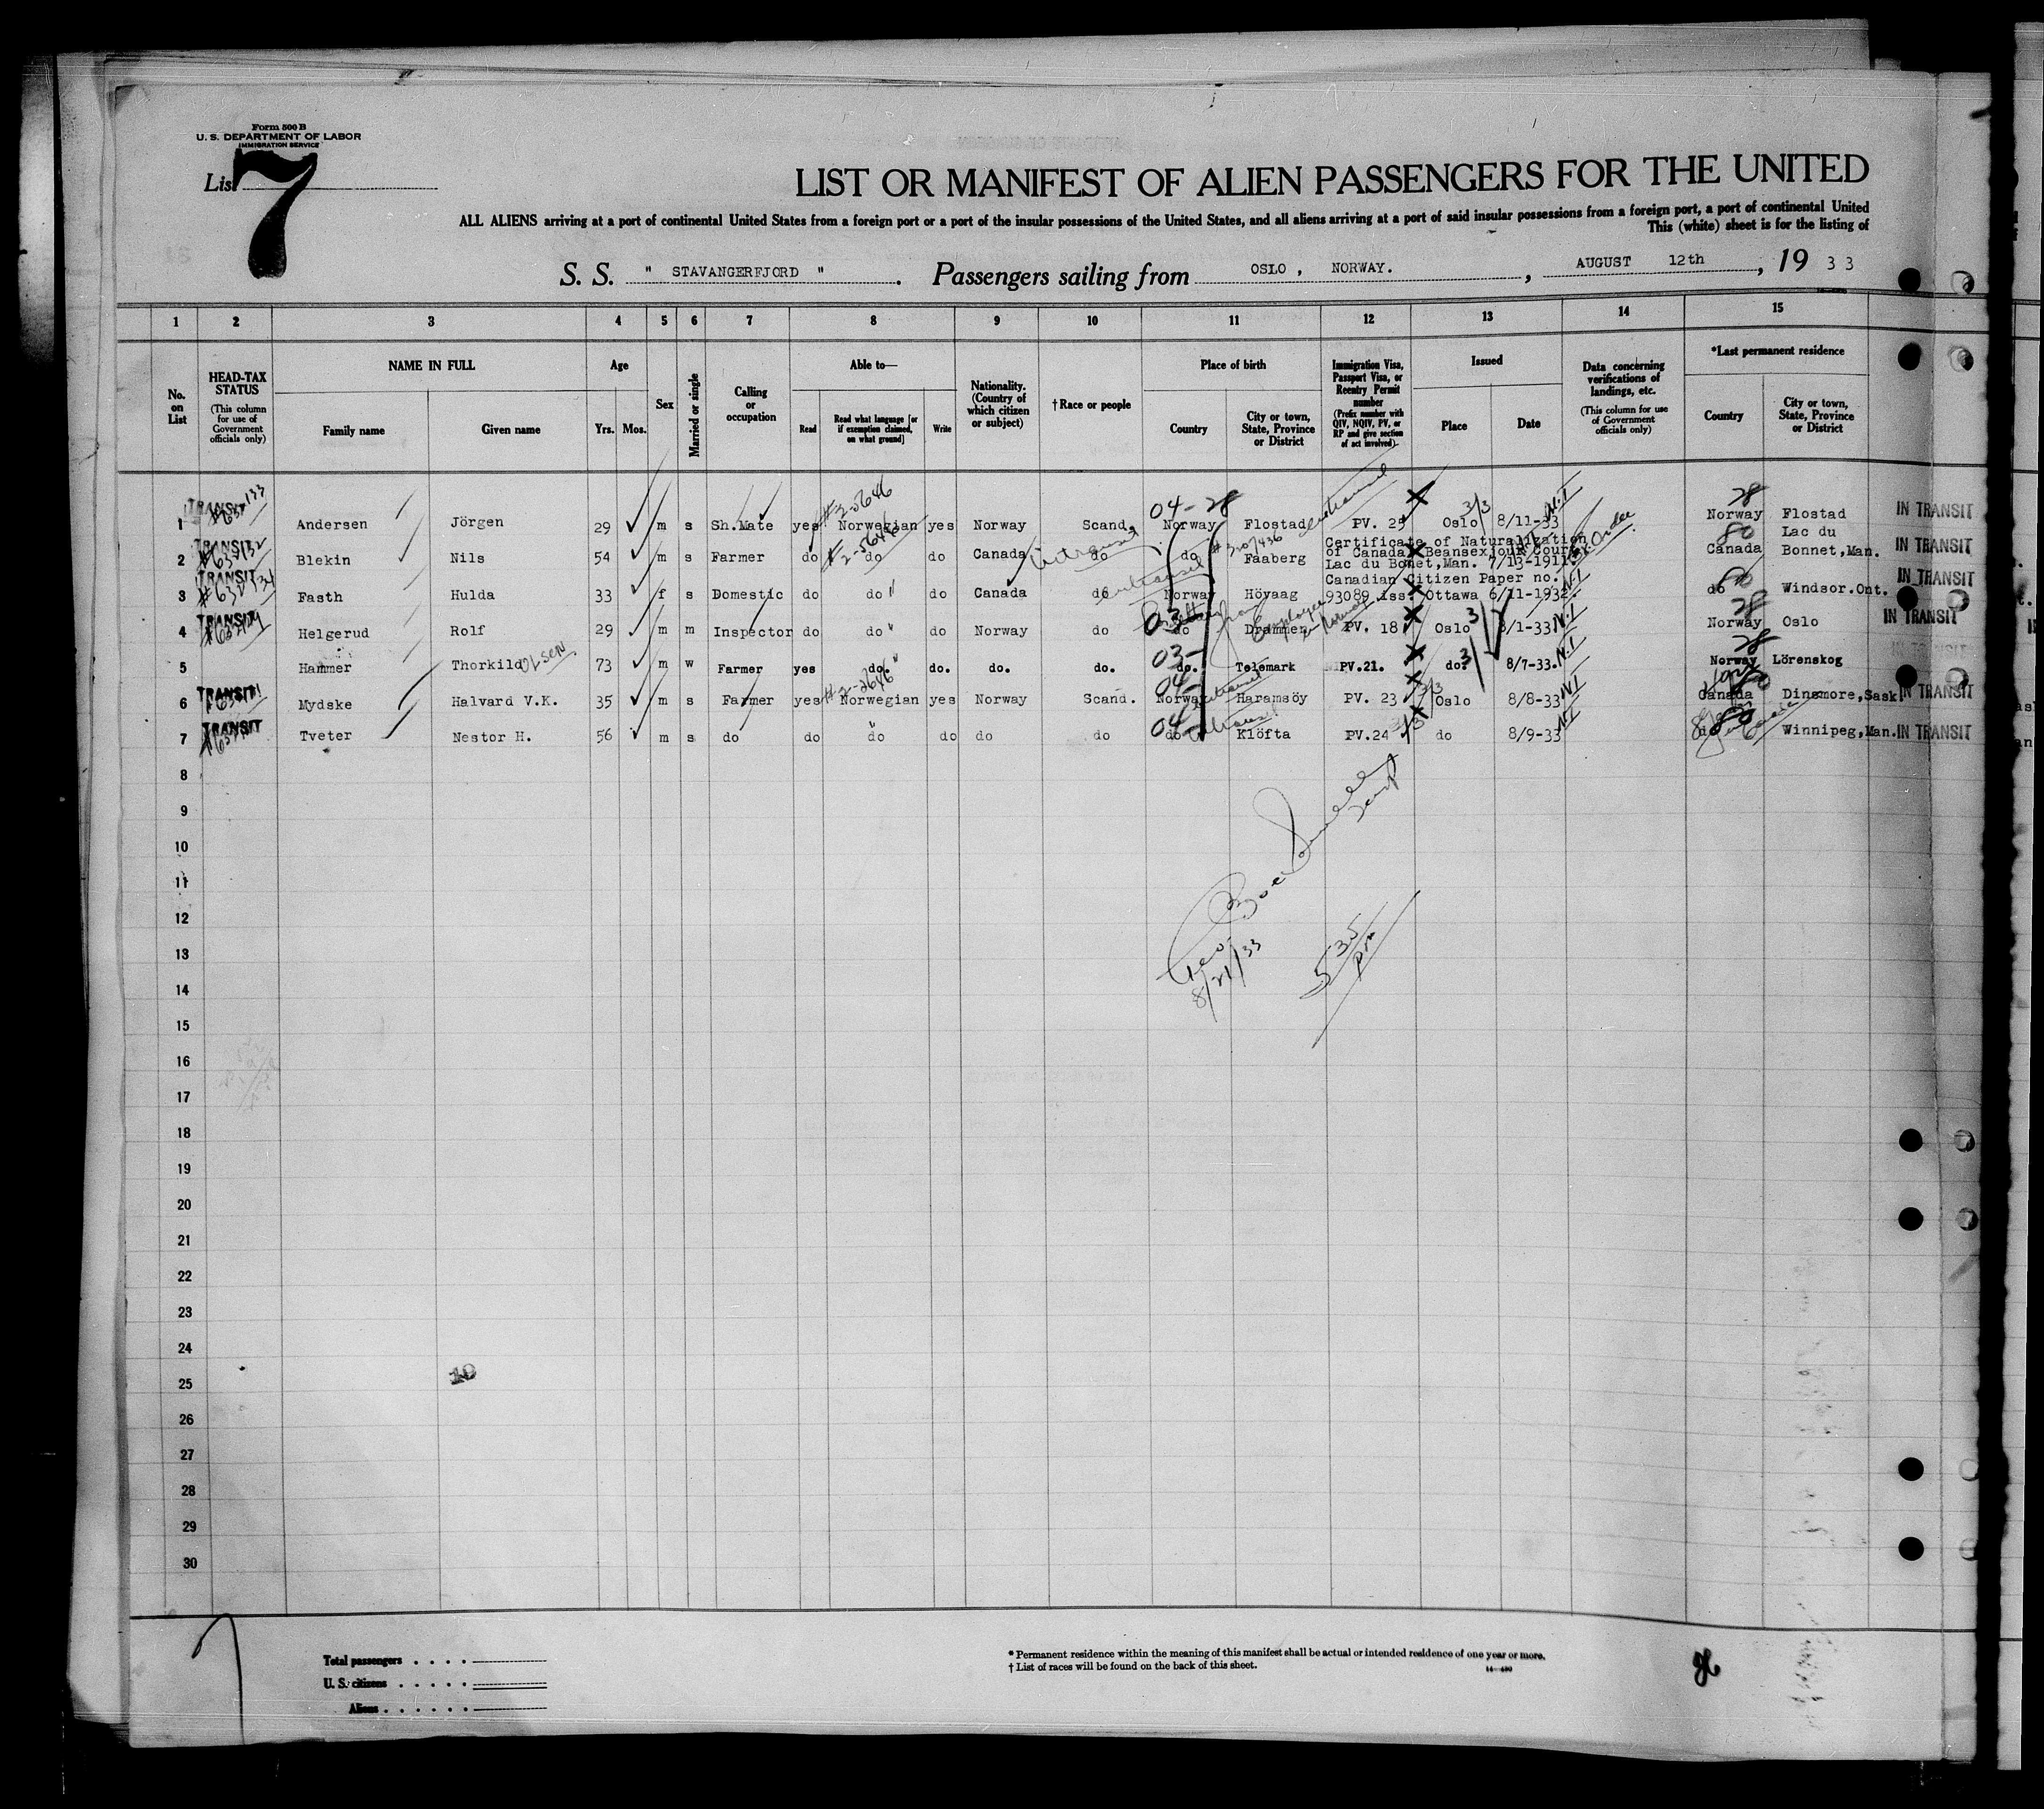 Form 500 B
U. S. DEPARTMENT OF LABOR
IMMIGRATION SERVICE
List 7
LIST OR MANIFEST OF ALIEN PASSENGERS FOR THE UNITED
ALL ALIENS arriving at a port of continental United States from a foreign port or a port of the insular possessions of the United States, and all aliens arriving at a port of said insular possessions from a foreign port, a port of continental United
This (white) sheet is for the listing of
S. S. " STAVANGERFJORD ". Passengers sailing from OSLO , NORWAY. , AUGUST 12th , 19 33
1 2 3 4 5 6 7 8 9 10 11 12 13 14 15
No. on List
HEAD-TAX STATUS (This column for use of Government officials only)
NAME IN FULL
Family name
Given name
Age
Yrs. Mos.
Sex
Married or single
Calling or occupation
Able to—
Read
Read what language [or if exemption claimed, on what ground]
Write
Nationality. (Country of which citizen or subject)
† Race or people
Place of birth
Country
City or town, State, Province or District
Immigration Visa, Passport Visa, or Reentry Permit number (Prefix number with QIV, NQIV, PV, or RP and give section of act involved).
Issued
Place
Date
Data concerning verifications of landings, etc. (This column for use of Government officials only)
*Last permanent residence
Country
City or town, State, Province or District
04-28 28
1 TRANSIT Andersen Jörgen 29 m s Sh.Mate yes Norwegian yes Norway Scand. Norway Flostad PV. 25 Oslo 8/11-33 Norway Flostad IN TRANSIT
2 TRANSIT Blekin Nils 54 m s Farmer do do do Canada do do Faaberg Certificate of Naturalization of Canada Beansexjour Court Lac du Bonet,Man. 7/13-1911. Canada Lac du Bonnet,Man. IN TRANSIT
3 TRANSIT Fasth Hulda 33 f s Domestic do do " do Canada do Norway Hövaag Canadian Citizen Paper no. 93089 iss. Ottawa 6/11-1932 do Windsor.Ont. IN TRANSIT
4 TRANSIT Helgerud Rolf 29 m m Inspector do do " do Norway do do Drammen PV. 18 Oslo 8/1-33 Norway Oslo IN TRANSIT
5 Hammer Thorkild Olsen 73 m w Farmer yes do. " do. do. do. do. Telemark PV.21. do. 8/7-33. Norway Lörenskog
6 TRANSIT Mydske Halvard V.K. 35 m s Farmer yes Norwegian yes Norway Scand. Norway Haramsöy PV. 23 Oslo 8/8-33 Canada Dinsmore,Sask IN TRANSIT
7 TRANSIT Tveter Nestor H. 56 m s do do do do do do do Klöfta PV.24 do 8/9-33 do Winnipeg,Man. IN TRANSIT
8
9
10
11
12
13
8/21/33 5 35 pm
14
15
16
17
18
19
20
21
22
23
24
25
10
26
27
28
29
30
Total passengers . . . .
U. S. citizens . . . . .
Aliens . . . . . .
* Permanent residence within the meaning of this manifest shall be actual or intended residence of one year or more.
† List of races will be found on the back of this sheet.
14—490